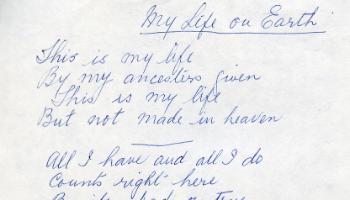 My Life on Earth
This is my life
By my ancesters given
This is my life
But not made in heaven
All I have and all I do
Counts right here